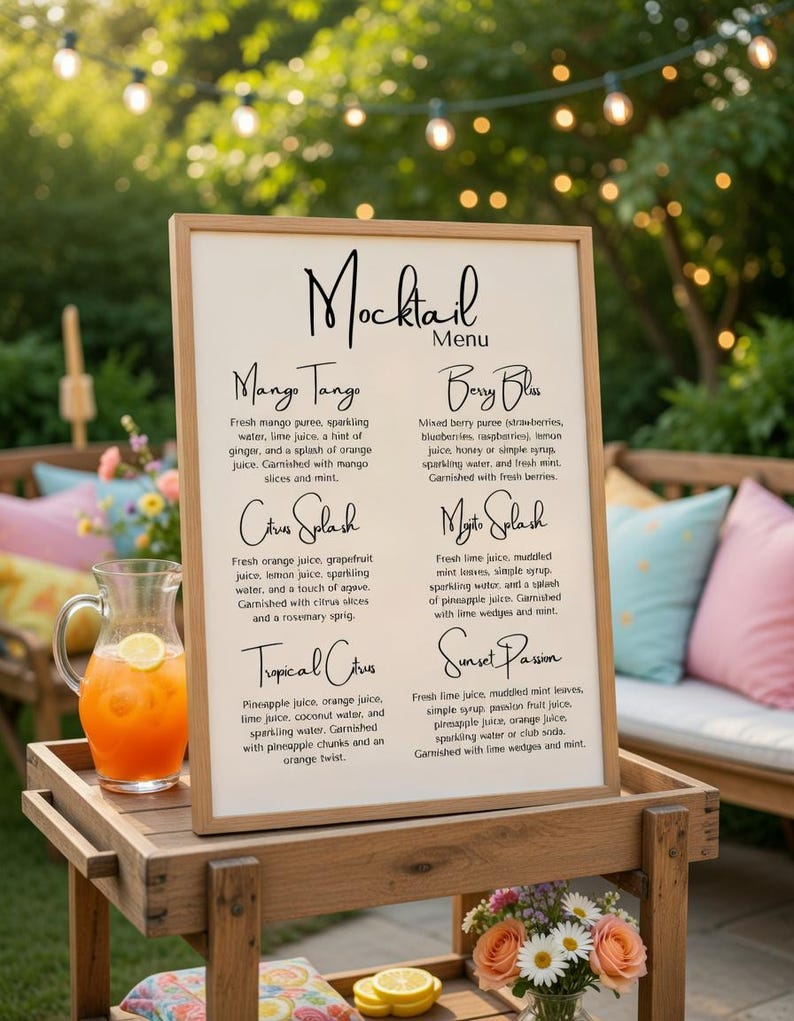 Mocktail
Menu
Mango Tango
Fresh mango puree, sparkling
water, lime juice, a hint of
ginger, and a splash of orange
juice. Garnished with mango
slices and mint.
Berry Bliss
Mixed berry puree (strawberries,
blueberries, raspberries), lemon
juice, honey or simple syrup,
sparkling water, and fresh mint.
Garnished with fresh berries.
Citrus Splash
Fresh orange juice, grapefruit
juice, lemon juice, sparkling
water, and a touch of agave.
Garnished with citrus slices
and a rosemary sprig.
Mojito Splash
Fresh lime juice, muddled
mint leaves, simple syrup,
sparkling water, and a splash
of pineapple juice. Garnished
with lime wedges and mint.
Tropical Citrus
Pineapple juice, orange juice,
lime juice, coconut water, and
sparkling water. Garnished
with pineapple chunks and an
orange twist.
Sunset Passion
Fresh lime juice, muddled mint leaves,
simple syrup, passion fruit juice,
pineapple juice, orange juice,
sparkling water or club soda.
Garnished with lime wedges and mint.